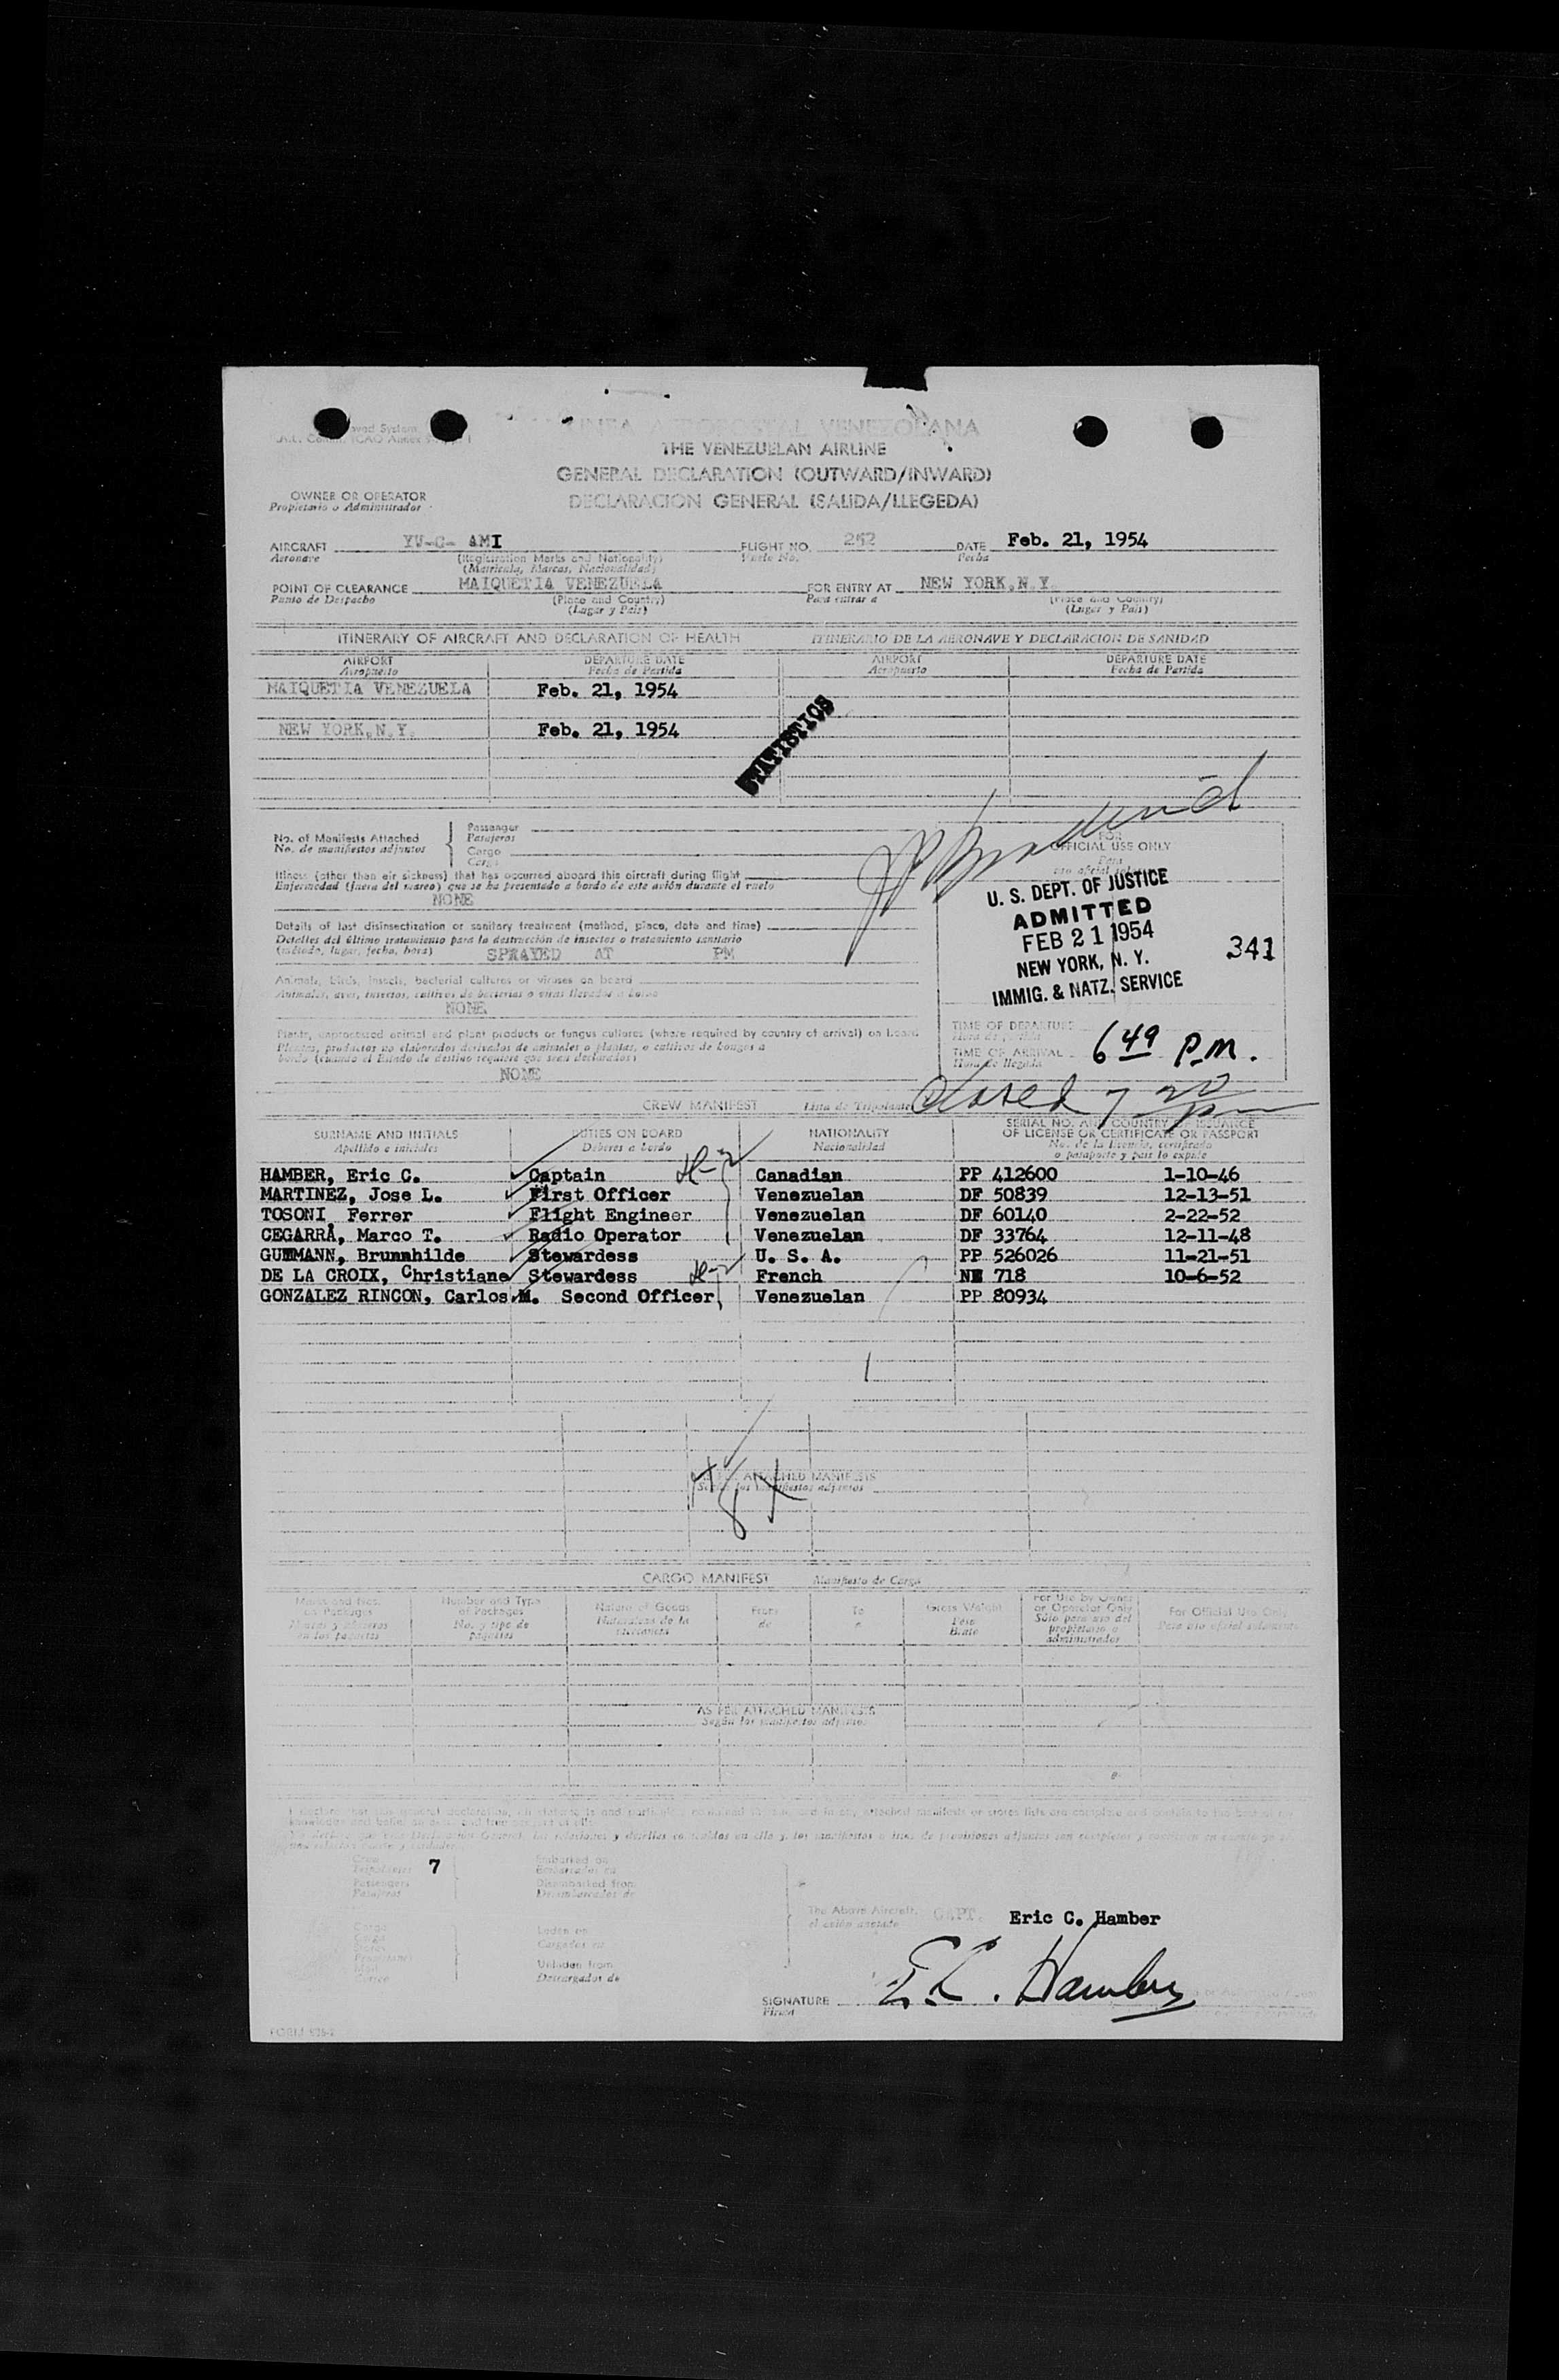 LINEA AEROPOSTAL VENEZOLANA
THE VENEZUELAN AIRLINE
GENERAL DECLARATION (OUTWARD/INWARD)
DECLARACION GENERAL (SALIDA/LLEGEDA)
OWNER OR OPERATOR
Propietario o Administrador
AIRCRAFT YV-C- AMI FLIGHT NO. 252 DATE Feb. 21, 1954
Aeronave (Registration Marks and Nationality) Vuelo No. Fecha
(Matricula, Marcas, Nacionalidad)
POINT OF CLEARANCE MAIQUETIA VENEZUELA FOR ENTRY AT NEW YORK,N.Y.
Punto de Despacho (Place and Country) Para entrar a (Place and Country)
(Lugar y Pais) (Lugar y Pais)
ITINERARY OF AIRCRAFT AND DECLARATION OF HEALTH ITINERARIO DE LA AERONAVE Y DECLARACION DE SANIDAD
AIRPORT DEPARTURE DATE AIRPORT DEPARTURE DATE
Aeropuerto Fecha de Partida Aeropuerto Fecha de Partida
MAIQUETIA VENEZUELA Feb. 21, 1954
NEW YORK,N.Y. Feb. 21, 1954
STATISTICS
No. of Manifests Attached Passenger
No. de manifiestos adjuntos Pasajeros
Cargo
Carga
FOR
OFFICIAL USE ONLY
Para
uso oficial
Illness (other than air sickness) that has occurred aboard this aircraft during flight
Enfermedad (fuera del mareo) que se ha presentado a bordo de este avión durante el vuelo
NONE
U. S. DEPT. OF JUSTICE
ADMITTED
FEB 21 1954
NEW YORK, N. Y.
IMMIG. & NATZ. SERVICE
341
Details of last disinsectization or sanitary treatment (method, place, date and time)
Detalles del último tratamiento para la destrucción de insectos o tratamiento sanitario
(método, lugar, fecha, hora) SPRAYED AT PM
Animals, birds, insects, bacterial cultures or viruses on board
Animales, aves, insectos, cultivos de bacterias o virus llevados a bordo
NONE
Plants, unprocessed animal and plant products or fungus cultures (where required by country of arrival) on board
Plantas, productos no elaborados derivados de animales o plantas, o cultivos de hongos a
bordo (cuando el Estado de destino requiere que sean declarados)
NONE
TIME OF DEPARTURE
TIME OF ARRIVAL 6 49 P.M.
Hora de llegada
Closed 7 20 pm
CREW MANIFEST Lista de Tripulantes
SURNAME AND INITIALS DUTIES ON BOARD NATIONALITY SERIAL NO. AND COUNTRY OF ISSUANCE
OF LICENSE OR CERTIFICATE OR PASSPORT
Apellido e iniciales Deberes a bordo Nacionalidad No. de la licencia, certificado
o pasaporte y pais lo expide
HAMBER, Eric C. Captain Canadian PP 412600 1-10-46
MARTINEZ, Jose L. First Officer Venezuelan DF 50839 12-13-51
TOSONI, Ferrer Flight Engineer Venezuelan DF 60140 2-22-52
CEGARRA, Marco T. Radio Operator Venezuelan DF 33764 12-11-48
GUTMANN, Brunnhilde Stewardess U. S. A. PP 526026 11-21-51
DE LA CROIX, Christiane Stewardess French NE 718 10-6-52
GONZALEZ RINCON, Carlos M. Second Officer Venezuelan PP 80934
ATTACHED MANIFESTS
CARGO MANIFEST Manifiesto de Carga
Marks and Nos. on Packages Number and Type of Packages Nature of Goods From To Gross Weight For Use by Owner or Operator Only For Official Use Only
AS PER ATTACHED MANIFESTS
Según los manifiestos adjuntos
Crew
Tripulantes 7
Passengers
Pasajeros
Embarked on
Embarcados en
Disembarked from
Desembarcados de
Cargo
Carga
Laden on
Cargados en
Unladen from
Descargados de
The Above Aircraft. CAPT. Eric C. Hamber
el avión anotado
SIGNATURE E.C. Hamber
Firma